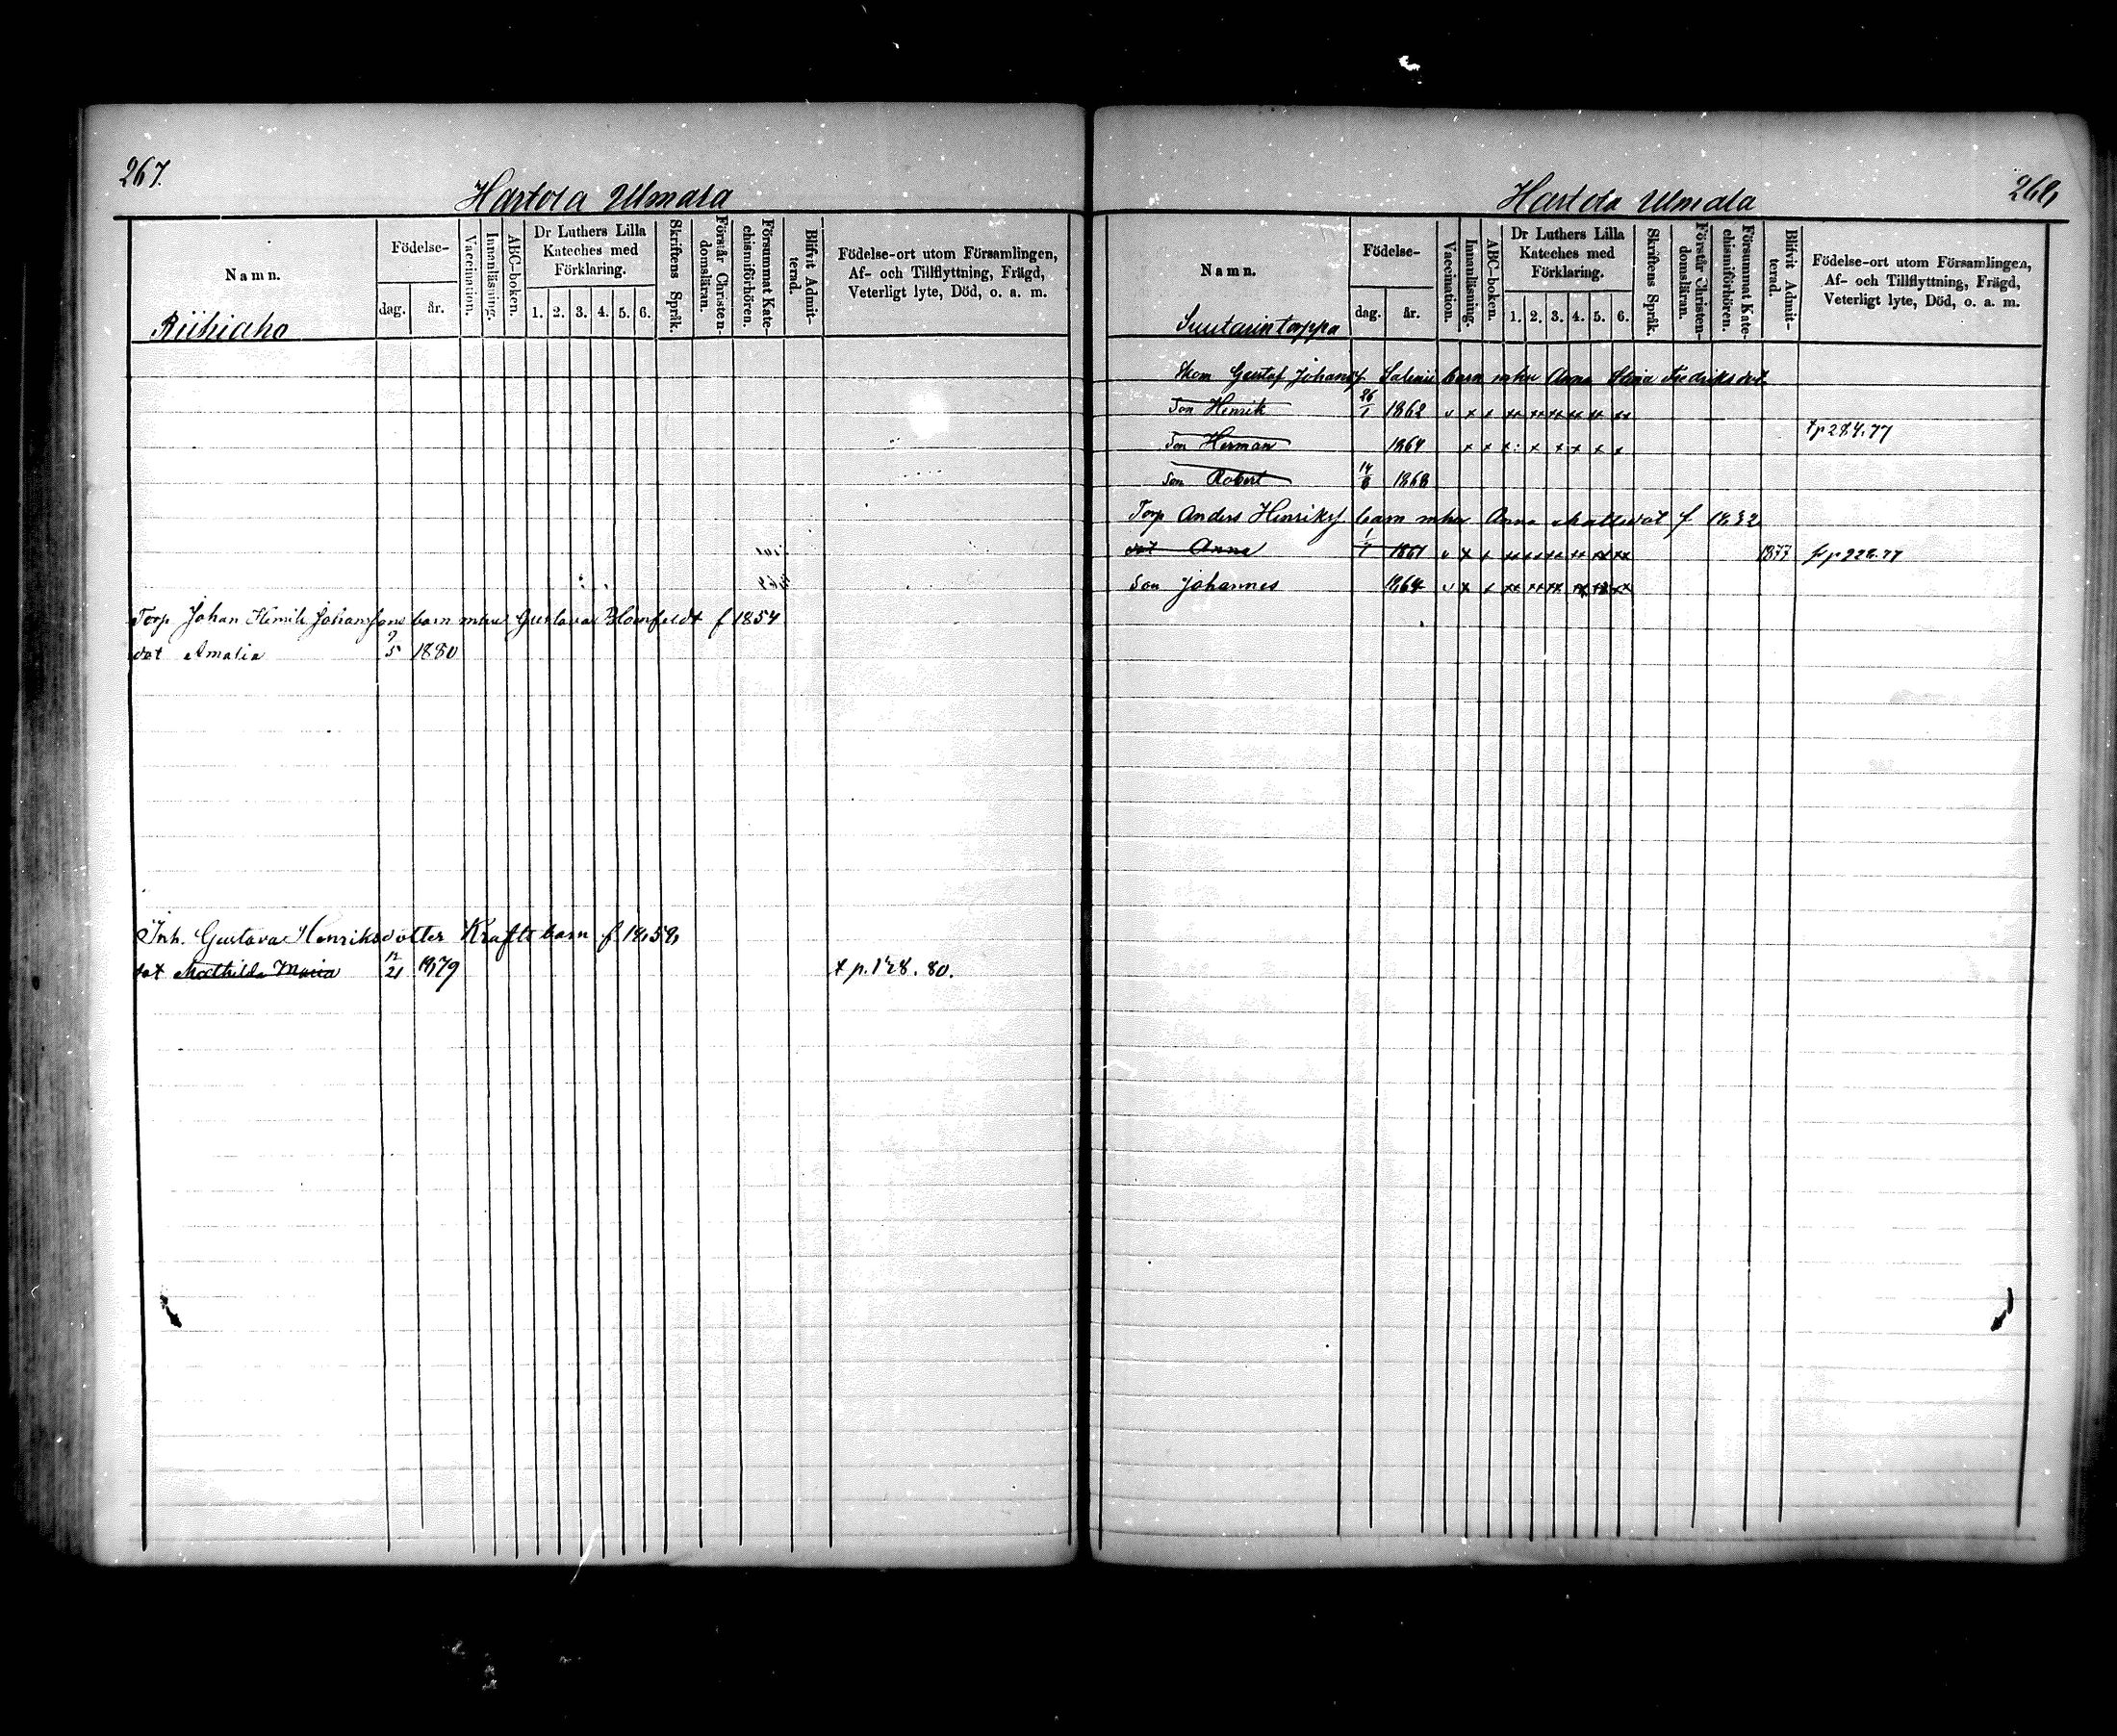 267.
Hartola Ulmala
Namn.
Födelse-
dag.
år.
Vaccination.
Innanläsning.
ABC-boken.
Dr Luthers Lilla
Kateches med
Förklaring.
1. 2. 3. 4. 5. 6.
Skriftens Språk.
Förstår Christen-
domsläran.
Försummat Kate-
chismiförhören.
Blifvit Admit-
terad.
Födelse-ort utom Församlingen,
Af- och Tillflyttning, Frägd,
Veterligt lyte, Död, o. a. m.
Riihiaho
Torp Johan Henrik Johanssons barn mhu Gustava Blomfeldt f 1854
dot Amalia 9/5 1880
Inh. Gustava Henriksdotter Krafts barn f. 1858,
dot Mathilda Maria 12/21 1879 t p. 128. 80.
268,
Hartola Ulmala
Namn.
Födelse-
dag.
år.
Vaccination.
Innanläsning.
ABC-boken.
Dr Luthers Lilla
Kateches med
Förklaring.
1. 2. 3. 4. 5. 6.
Skriftens Språk.
Förstår Christen-
domsläran.
Försummat Kate-
chismiförhören.
Blifvit Admit-
terad.
Födelse-ort utom Församlingen,
Af- och Tillflyttning, Frägd,
Veterligt lyte, Död, o. a. m.
Suutarintorppa
Gustaf Johans barn mhu Anna Fredriksdot.
Son Henrik 26/1 1862 v x x xx xx xx xx xx xx
t p 284. 77
Son Herman 1864 x x x x x x x x
Son Robert 14/8 1868
Torp Anders Henriks barn mhu Anna f 1832
dot Anna 1/7 1861 v x x xx xx xx xx xx xx 1877 t p 228. 77
Son Johannes 1864 v x x xx xx xx xx xx xx